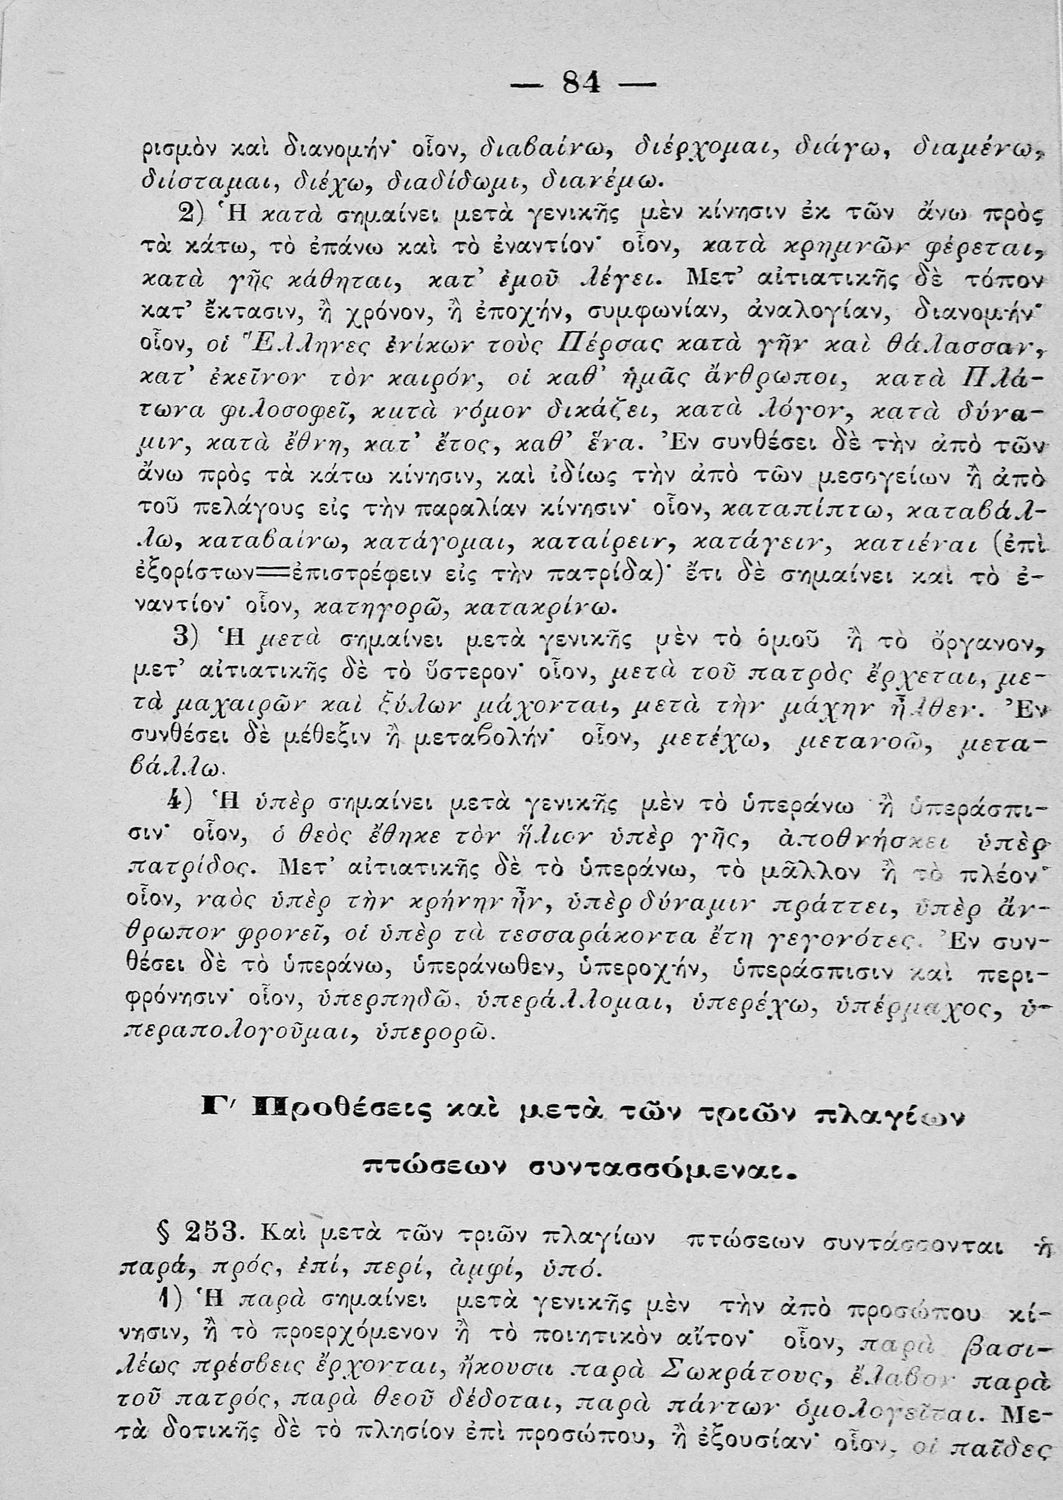 — 84 —
ρισμὸν καὶ διανομήν· οἷον, διαβαίνω, διέρχομαι, διάγω, διαμένω,
διίσταμαι, διέχω, διαδίδωμι, διανέμω.
2) Ἡ κατὰ σημαίνει μετὰ γενικῆς μὲν κίνησιν ἐκ τῶν ἄνω πρὸς
τὰ κάτω, τὸ ἐπάνω καὶ τὸ ἐναντίον· οἷον, κατὰ κρημνῶν φέρεται,
κατὰ γῆς κάθηται, κατ' ἐμοῦ λέγει. Μετ' αἰτιατικῆς δὲ τόπον
κατ' ἔκτασιν, ἢ χρόνον, ἢ ἐποχήν, συμφωνίαν, ἀναλογίαν, διανομήν·
οἷον, οἱ Ἕλληνες ἐνίκων τοὺς Πέρσας κατὰ γῆν καὶ θάλασσαν,
κατ' ἐκεῖνον τὸν καιρόν, οἱ καθ' ἡμᾶς ἄνθρωποι, κατὰ Πλά-
τωνα φιλοσοφεῖ, κατὰ νόμον δικάζει, κατὰ λόγον, κατὰ δύνα-
μιν, κατὰ ἔθνη, κατ' ἔτος, καθ' ἕνα. Ἐν συνθέσει δὲ τὴν ἀπὸ τῶν
ἄνω πρὸς τὰ κάτω κίνησιν, καὶ ἰδίως τὴν ἀπὸ τῶν μεσογείων ἢ ἀπὸ
τοῦ πελάγους εἰς τὴν παραλίαν κίνησιν· οἷον, καταπίπτω, καταβάλ-
λω, καταβαίνω, κατάγομαι, καταίρειν, κατάγειν, κατιέναι (ἐπὶ
ἐξορίστων=ἐπιστρέφειν εἰς τὴν πατρίδα)· ἔτι δὲ σημαίνει καὶ τὸ ἐ-
ναντίον· οἷον, κατηγορῶ, κατακρίνω.
3) Ἡ μετὰ σημαίνει μετὰ γενικῆς μὲν τὸ ὁμοῦ ἢ τὸ ὄργανον,
μετ' αἰτιατικῆς δὲ τὸ ὕστερον· οἷον, μετὰ τοῦ πατρὸς ἔρχεται, με-
τὰ μαχαιρῶν καὶ ξύλων μάχονται, μετὰ τὴν μάχην ἦλθεν. Ἐν
συνθέσει δὲ μέθεξιν ἢ μεταβολήν· οἷον, μετέχω, μετανοῶ, μετα-
βάλλω.
4) Ἡ ὑπὲρ σημαίνει μετὰ γενικῆς μὲν τὸ ὑπεράνω ἢ ὑπεράσπι-
σιν· οἷον, ὁ θεὸς ἔθηκε τὸν ἥλιον ὑπὲρ γῆς, ἀποθνήσκει ὑπὲρ
πατρίδος. Μετ' αἰτιατικῆς δὲ τὸ ὑπεράνω, τὸ μᾶλλον ἢ τὸ πλέον·
οἷον, ναὸς ὑπὲρ τὴν κρήνην ἦν, ὑπὲρ δύναμιν πράττει, ὑπὲρ ἄν-
θρωπον φρονεῖ, οἱ ὑπὲρ τὰ τεσσαράκοντα ἔτη γεγονότες. Ἐν συν-
θέσει δὲ τὸ ὑπεράνω, ὑπεράνωθεν, ὑπεροχήν, ὑπεράσπισιν καὶ περι-
φρόνησιν· οἷον, ὑπερπηδῶ, ὑπεράλλομαι, ὑπερέχω, ὑπέρμαχος, ὑ-
περαπολογοῦμαι, ὑπερορῶ.
Γ' Προθέσεις καὶ μετὰ τῶν τριῶν πλαγίων
πτώσεων συντασσόμεναι.
§ 253. Καὶ μετὰ τῶν τριῶν πλαγίων πτώσεων συντάσσονται ἡ
παρά, πρός, ἐπί, περί, ἀμφί, ὑπό.
1) Ἡ παρὰ σημαίνει μετὰ γενικῆς μὲν τὴν ἀπὸ προσώπου κί-
νησιν, ἢ τὸ προερχόμενον ἢ τὸ ποιητικὸν αἴτον· οἷον, παρὰ βασι-
λέως πρέσβεις ἔρχονται, ἤκουσα παρὰ Σωκράτους, ἔλαβον παρὰ
τοῦ πατρός, παρὰ θεοῦ δέδοται, παρὰ πάντων ὁμολογεῖται. Με-
τὰ δοτικῆς δὲ τὸ πλησίον ἐπὶ προσώπου, ἢ ἐξουσίαν· οἷον, οἱ παῖδες